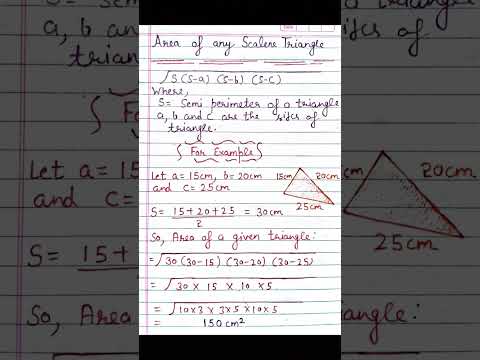 Area of any Scalene Triangle
√S(S-a) (S-b) (S-c)
Where,
S= Semi perimeter of a triangle
a, b and c are the sides of
triangle.
For Example
Let a= 15cm, b= 20cm
and c= 25cm
15cm
20cm
25cm
S= 15+20+25/2 = 30cm
So, Area of a given triangle:
=√30 (30-15) (30-20) (30-25)
= √30 x 15 x 10 x 5
= √10x3 x 3x5 x10 x 5
= 150cm²